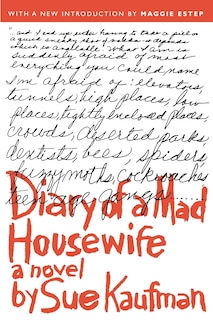 WITH A NEW INTRODUCTION BY MAGGIE ESTEP
"And I end up either having to take a pill or
which is available. What I am is
suddenly afraid of most
everything you could name
I'm afraid of: elevators,
tunnels, high places, low
places, tightly enclosed places,
crowds, deserted parks,
dentists, bees, spiders,
fuzzy moths, cockroaches
teen-age gangs......
Diary of a Mad
Housewife
a novel
by Sue Kaufman